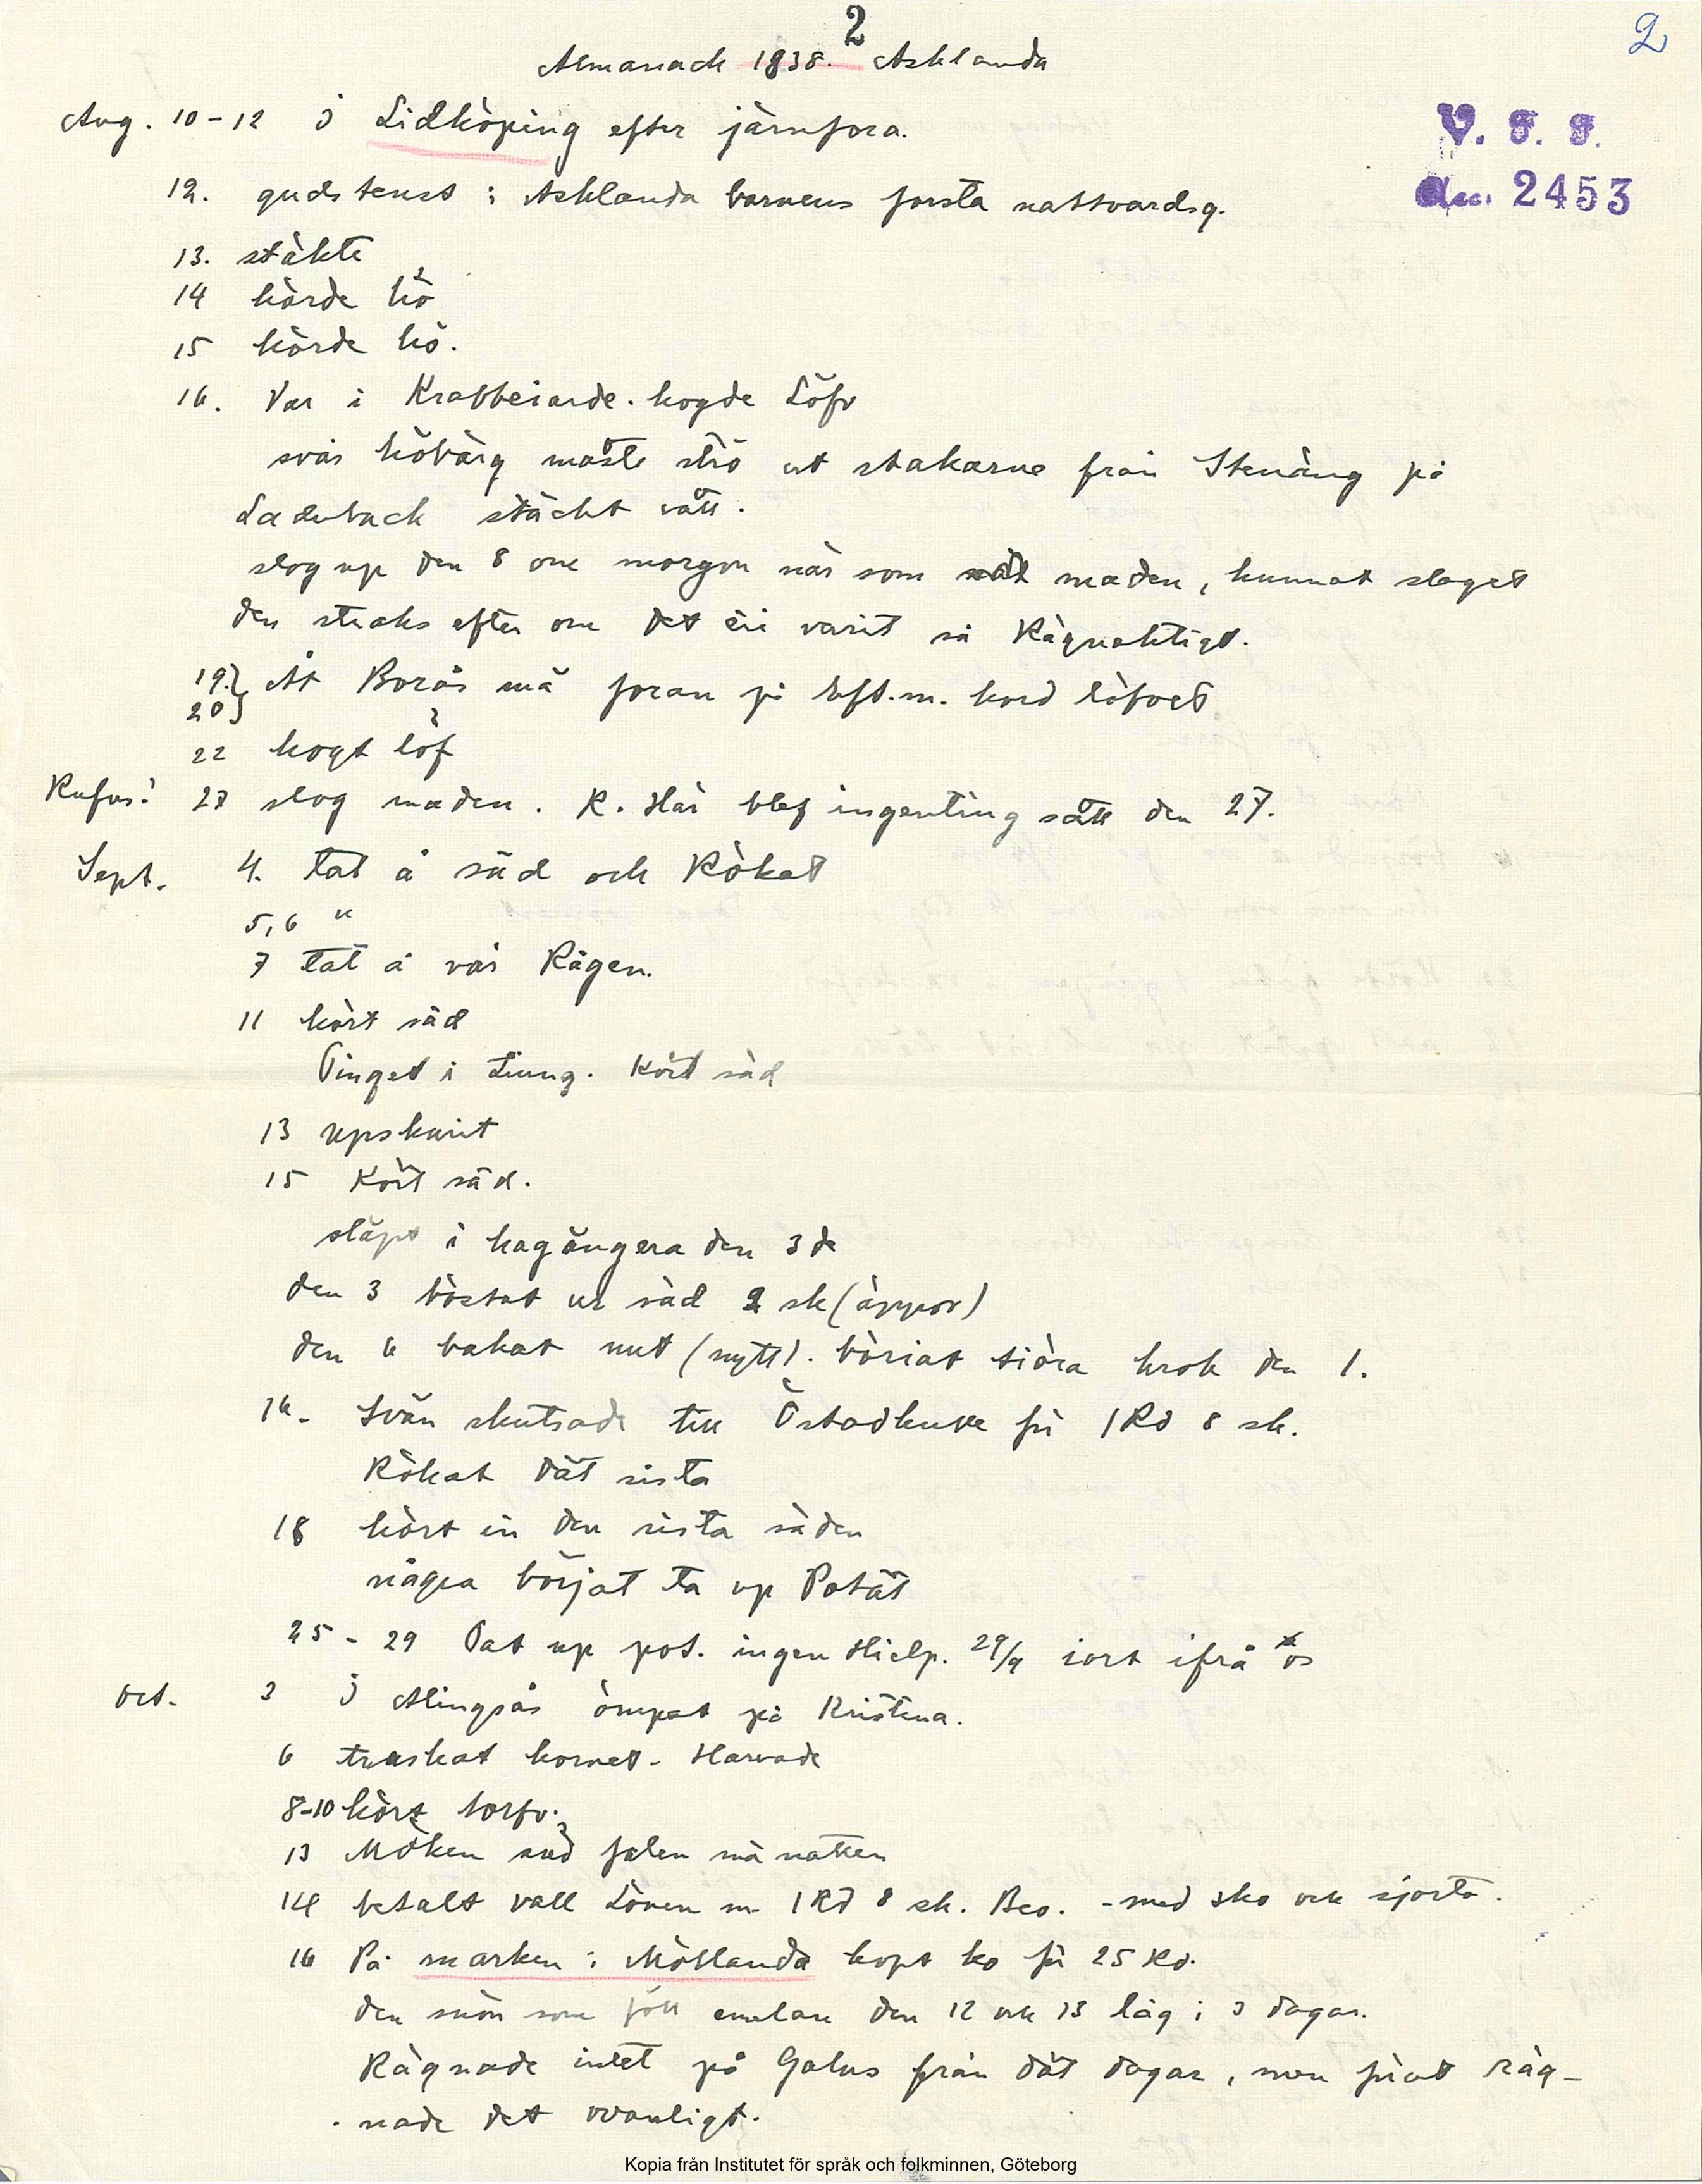 2
2
Almanach 1838. Asklanda
V. F. F.
Aug. 10-12 I Lidköping efter järnfora.
12. gudstenst i Asklanda barnens forsta nattvardsg.
acc. 2453
13. stäkte
14 körde hö
15 körde hö.
16. Var i hogde Löfv
svår höbärg måste strö ut stakarne från Stenäng på
Laduback stächt vått.
slog up den 8 om morgon när som maden, kunnat slaget
den straks efter om det ei varit så Rägnaktigt.
19.} At Borås må foran på eft.m. hord löfvet
20}
22 hogt löf
Rufus! 27 slog maden. R. Här blef ingenting sått den 27.
Sept. 4. tat å säd och Rökat
5,6 "
7 tat å vår Rågen.
11 kört säd
Tinget i Liung. Kört säd
13 upskurit
15 Kört säd.
släpt i hagängera den 3 de
den 3 böstat ur säd 2 sk (äppor)
den 6 bakat nut (nytt). böriat tiöra krok den 1.
16. Svän skutsade till Östadkulle för 1 Rd 8 sk.
Rökat dät sista
18 kört in den sista säden
några börjat ta up Potät
25-29 Tat up pot. ingen Hielp. 29/9 iort ifrå os
Oct. 3 I Alingsås ömpat på Kristina.
6 truskat kornet - Harvade
8-10 kört torfv.
13 Möken snö falen nä natten
14 betalt vall Lönen m. 1 Rd 8 sk. Bco. - med sko och sjorta.
16 På marken i Möllanda kopt ko för 25 Rd.
den snön som föll emelan den 12 och 13 låg i 3 dagar.
Rägnade intet på Galus från dät dagar, men förut räg-
nade det ovanligt.
Kopia från Institutet för språk och folkminnen, Göteborg